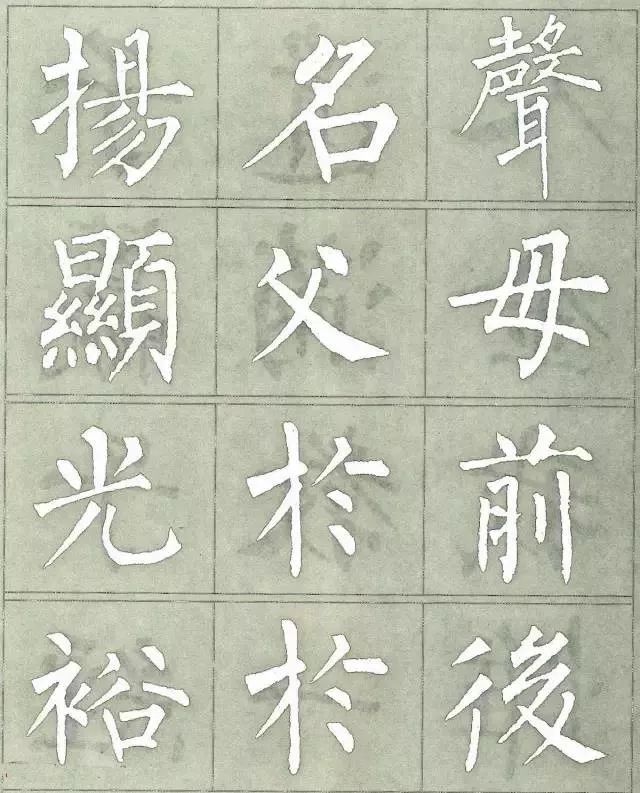 揚名聲
顯父母
光於前
裕於後